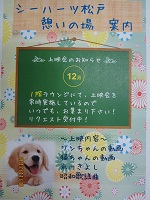 シーハーツ松戸
憩いの場 案内
上映会のお知らせ
12月
1階ラウンジにて、上映会を
実施しているので
いつでも、お集まり下さい!
リクエスト受付中!
～上映内容～
ワンちゃんの動画
猫ちゃんの動画
あいきょし
昭和歌謡祭